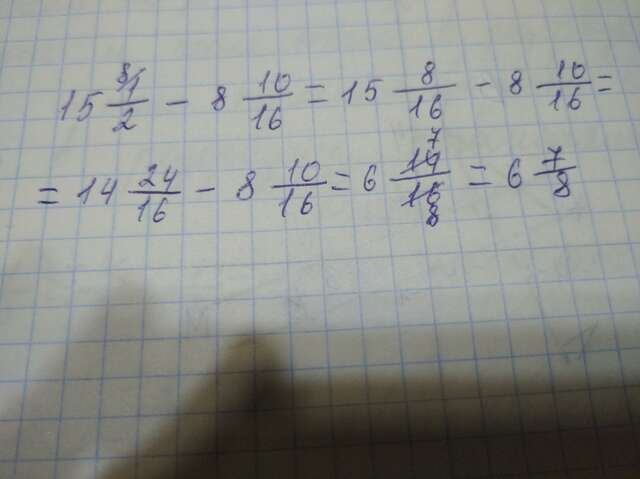 15 8/1/2 - 8 10/16 = 15 8/16 - 8 10/16 =
= 14 24/16 - 8 10/16 = 6 14/16 7/8 = 6 7/8